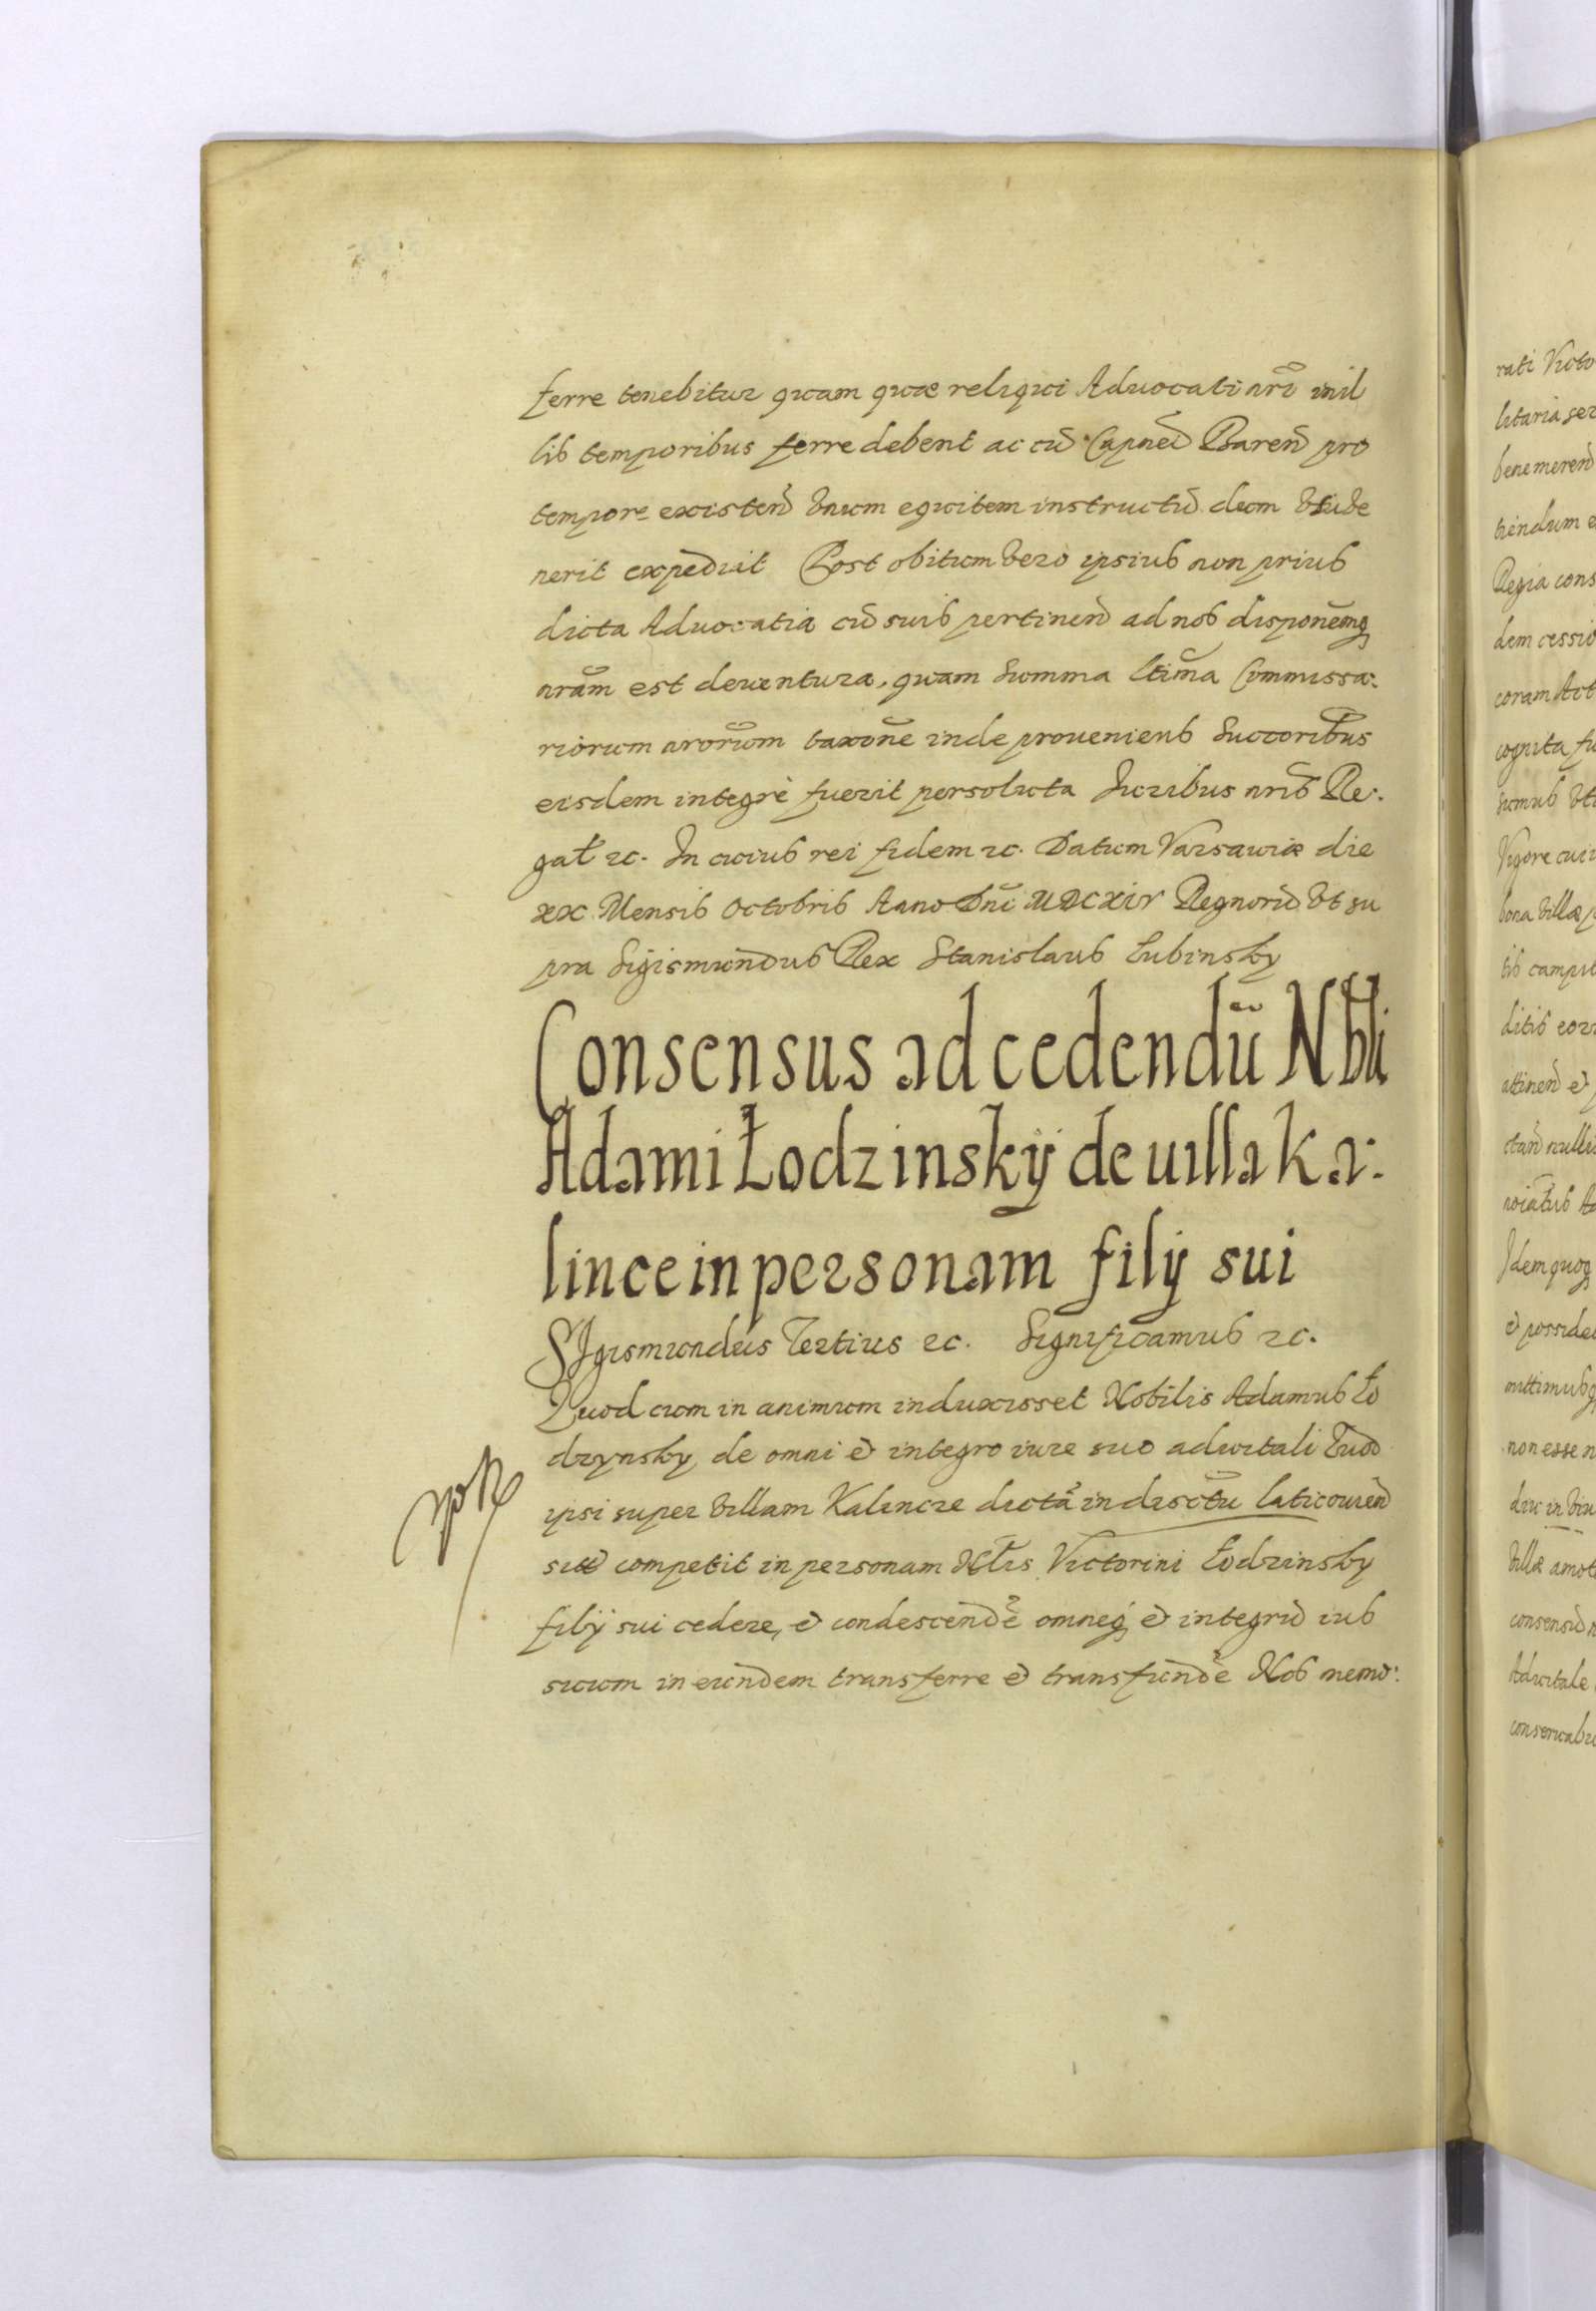 ferre tenebitur quam quae reliqui Aduocati nrī mil
lib temporibus ferre debent ac cū Capneō Baren̄ pro
tempore existen̄ vnum equitem instructū dum vsude
nerit expediit Post obitum vero ipsius non prius
dicta Aduocatia cū suis pertinen̄ ad nos disponēmq
nrām est deuentura, quam summa ltīma Commissa:
riorum nrorūm taxonē inde proueniens Succoribūs
eisdem integrè fuerit persoluta Iuribus nrīs Re:
gał etc. In cuius rei fidem etc. Datum Varsauiæ die
XX Mensis Octobris Anno Dnī MDCXIV Regnorū vt su
pra Sigismundus Rex Stanislaus Łubinsky
Consensus ad cedendū Nbli
Adami Łodzinskÿ de uilla Ka:
lince in personam filÿ sui
SIgismundus Tertius etc. Significamus etc.
Quod cum in animum induxisset Nobilis Adamus Ło
dzynsky de omni et integro iure suo aduitali quod
ipsi super villam Kalincze dictā in distctū laticouien̄
sitā competit in personam Nłis Victorini Łodzinsky
filÿ sui cedere, et condescendē omneq et integrū ius
suum in eundem transferre et transfundē Nos nemo:
rati Victo
litaria ser
benemeren̄
tiendum e
Regia cons
dem cessio
coram Act
cognita fu
sumus vti
Vigore cui
bona villæ p
tis campis
ditis eorr
attinen̄ et
ctan̄ nullis
noiātus A
Idem quoq
et posside
mittimusq
non esse n
diu in viu
villæ amot
consensū n
Aduitale
conseruabi